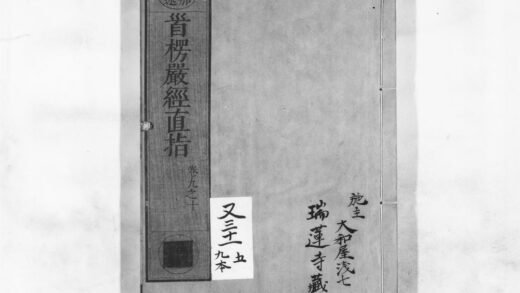 施主
大和屋浅七
瑞蓮寺藏
首楞嚴經直指
卷九之十
又三十一
五
九本